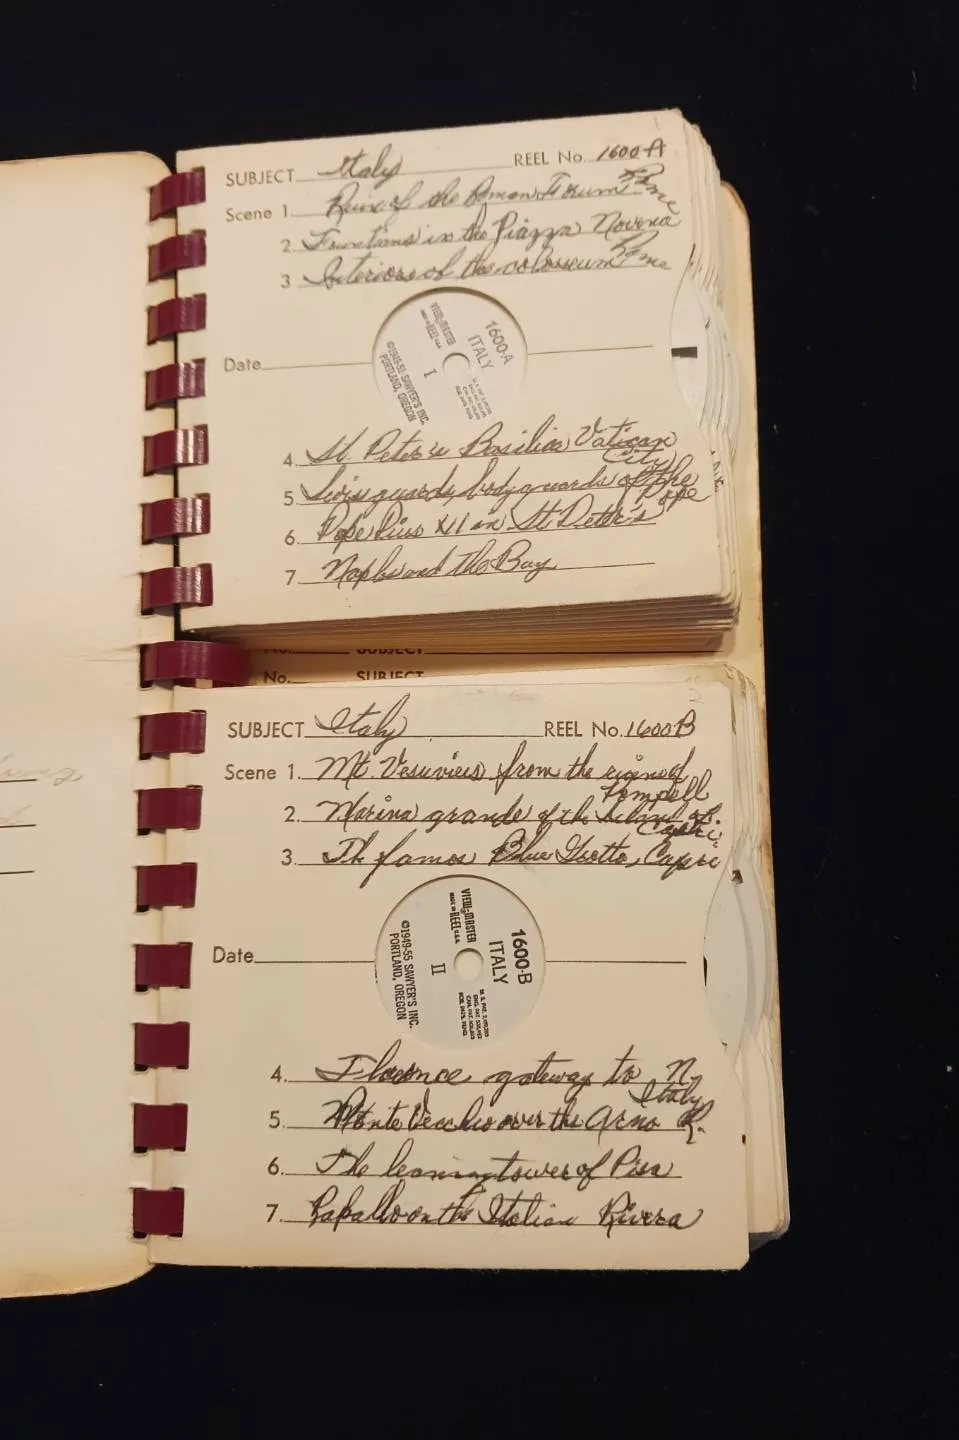 SUBJECT Italy REEL No. 1600-A
Scene 1. Ruin of the Roman Forum Rome
2. Fountains in the Piazza Novona
3 Interiors of the colosseum Rome
Date
1600-A
ITALY
VIEW-MASTER
REEL
I
©1949-53 SAWYER'S INC.
PORTLAND, OREGON
4. St. Peter's Basilica Vatican City
5 Swiss guards, bodyguards of the Pope
6. Pope Pius XII in St Peter's
7 Naples and the Bay
No. SUBJECT
No. SUBJECT
SUBJECT Italy REEL No. 1600B
Scene 1. Mt. Vesuvius from the ruins of
2. Marina grande of the Island of Capri
3. Th famos Blue Grotto, Capri
Date
1600-B
ITALY
VIEW-MASTER
MADE IN REEL U.S.A.
II
©1949-55 SAWYER'S INC.
PORTLAND, OREGON
4. Florence gateway to N. Italy
5. Ponte Vecchio over the Arno R.
6. The leaning tower of Pisa
7. Rapallo on the Italian Rivera